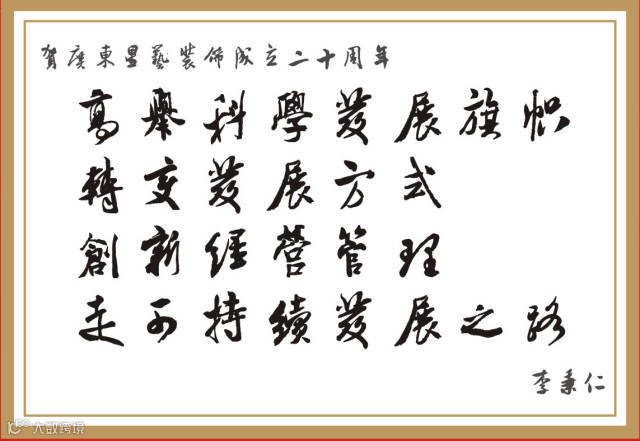 賀廣東星藝裝佈成立二十周年
高舉科學發展旗帜
轉变發展方式
創新经营管理
走可持續發展之路
李秉仁
大数跨境